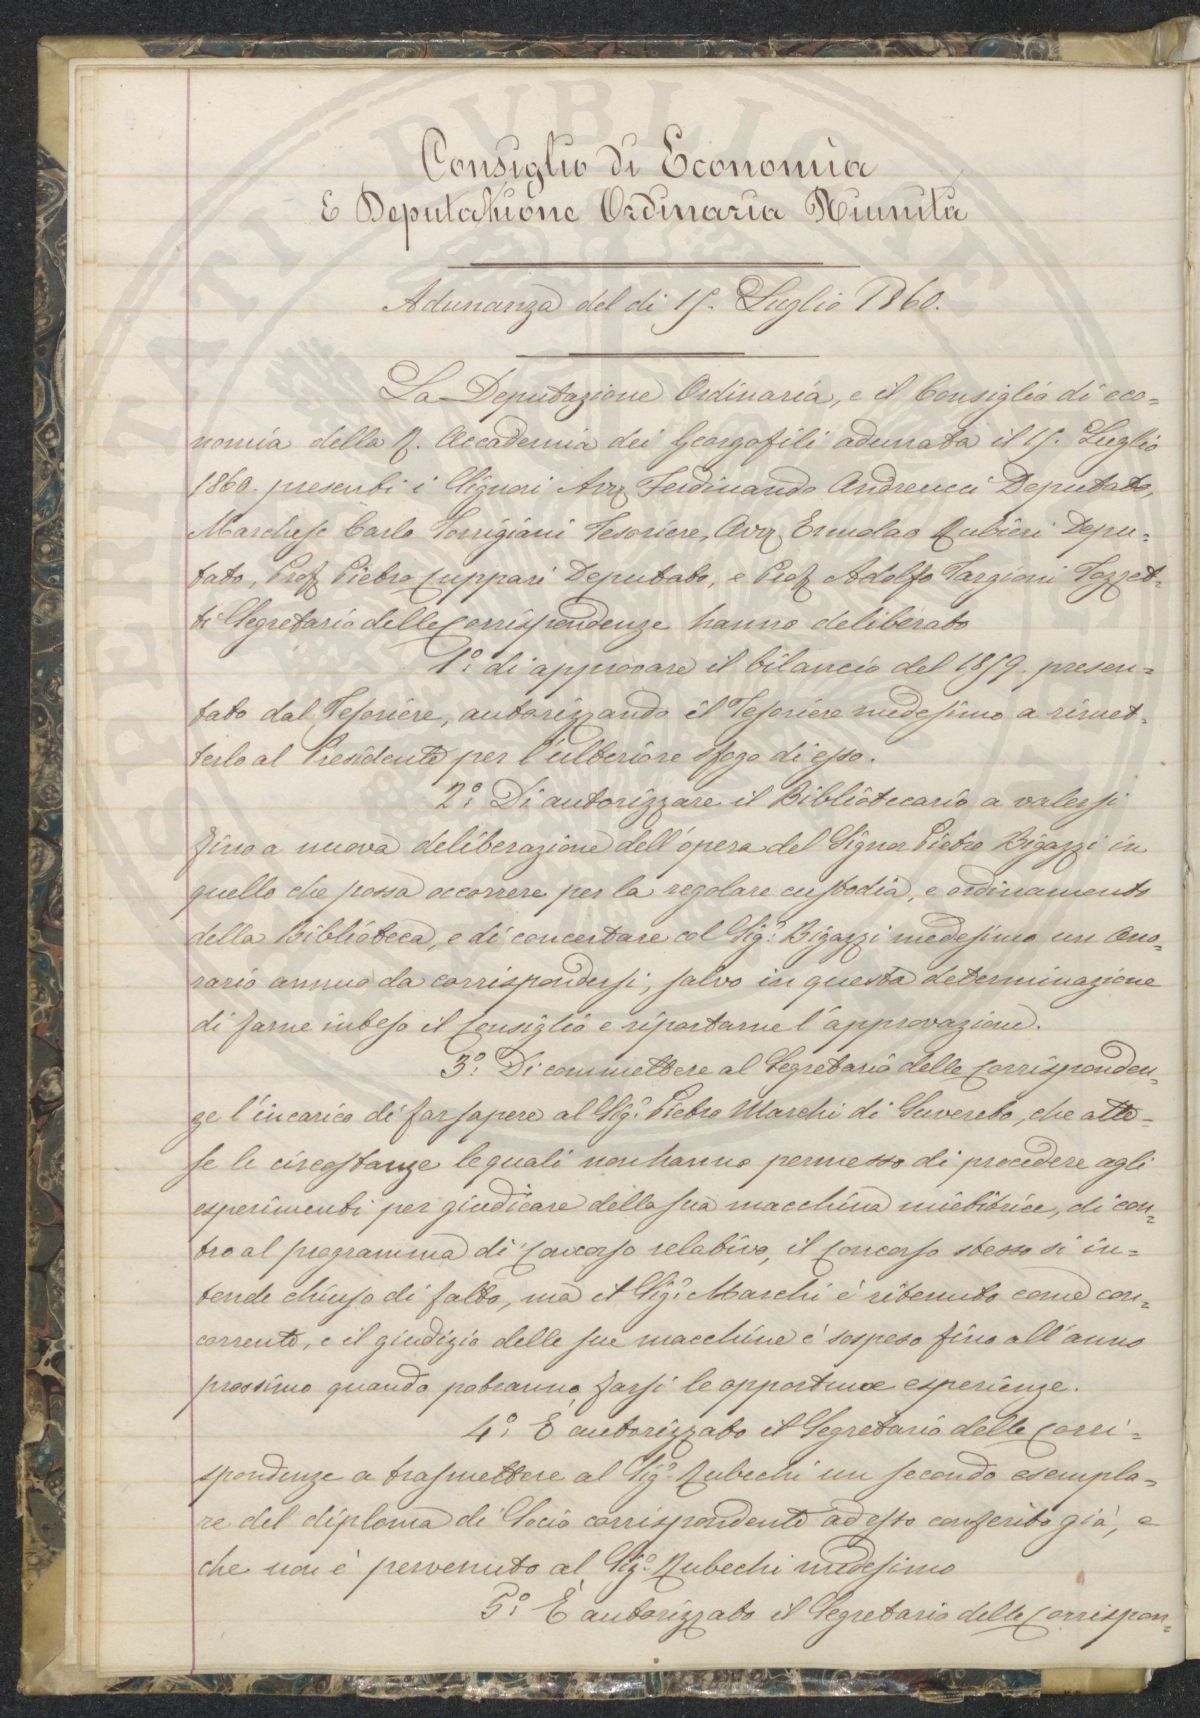 Consiglio di Economia
E Deputazione Ordinaria Riunita
Adunanza del dì 15. Luglio 1860.
La Deputazione Ordinaria, e il Consiglio di eco=
nomia della R. Accademia dei Georgofili adunata il 15. Luglio
1860. presenti i Signori Avv Ferdinando Andreucci Deputato,
Marchese Carlo Torrigiani Tesoriere, Avv Ermolao Rubieri Depu=
tato, Prof Pietro Cuppari Deputato, e Prof Adolfo Targioni Tozzet=
ti Segretario delle Corrispondenze hanno deliberato
1º: di approvare il bilancio del 1859. presen=
tato dal Tesoriere, autorizzando il Tesoriere medesimo a rimet=
terlo al Presidente per l'ulteriore sfogo di esso.
2º: Di autorizzare il Bibliotecario a valersi
fino a nuova deliberazione dell'opera del Signor Pietro Bigazzi in
quello che possa occorrere per la regolare custodia, e ordinamento
della Biblioteca, e di concertare col Sigr: Bigazzi medesimo un Ono=
rario annuo da corrispondersi, salvo in questa determinazione
di farne inteso il Consiglio e riportarne l'approvazione.
3º: Di commettere al Segretario delle Corrisponden=
ze l'incarico di far sapere al Sigr: Pietro Marchi di Suvereto, che atte=
se le circostanze le quali non hanno permesso di procedere agli
esperimenti per giudicare della sua macchina mietitrice, di con=
tro al programma di Concorso relativo, il Concorso stesso si in=
tende chiuso di fatto, ma il Sigr: Marchi è ritenuto come con=
corrente, e il giudizio delle sue macchine è sospeso fino all'anno
prossimo quando potranno farsi le opportune esperienze.
4º: È autorizzato il Segretario delle Corri=
spondenze a trasmettere al Sigr: Rubechi un secondo esempla=
re del diploma di Socio corrispondente ad esso conferito già, e
che non è pervenuto al Sigr: Rubechi medesimo
5º: È autorizzato il Segretario delle Corrispon=